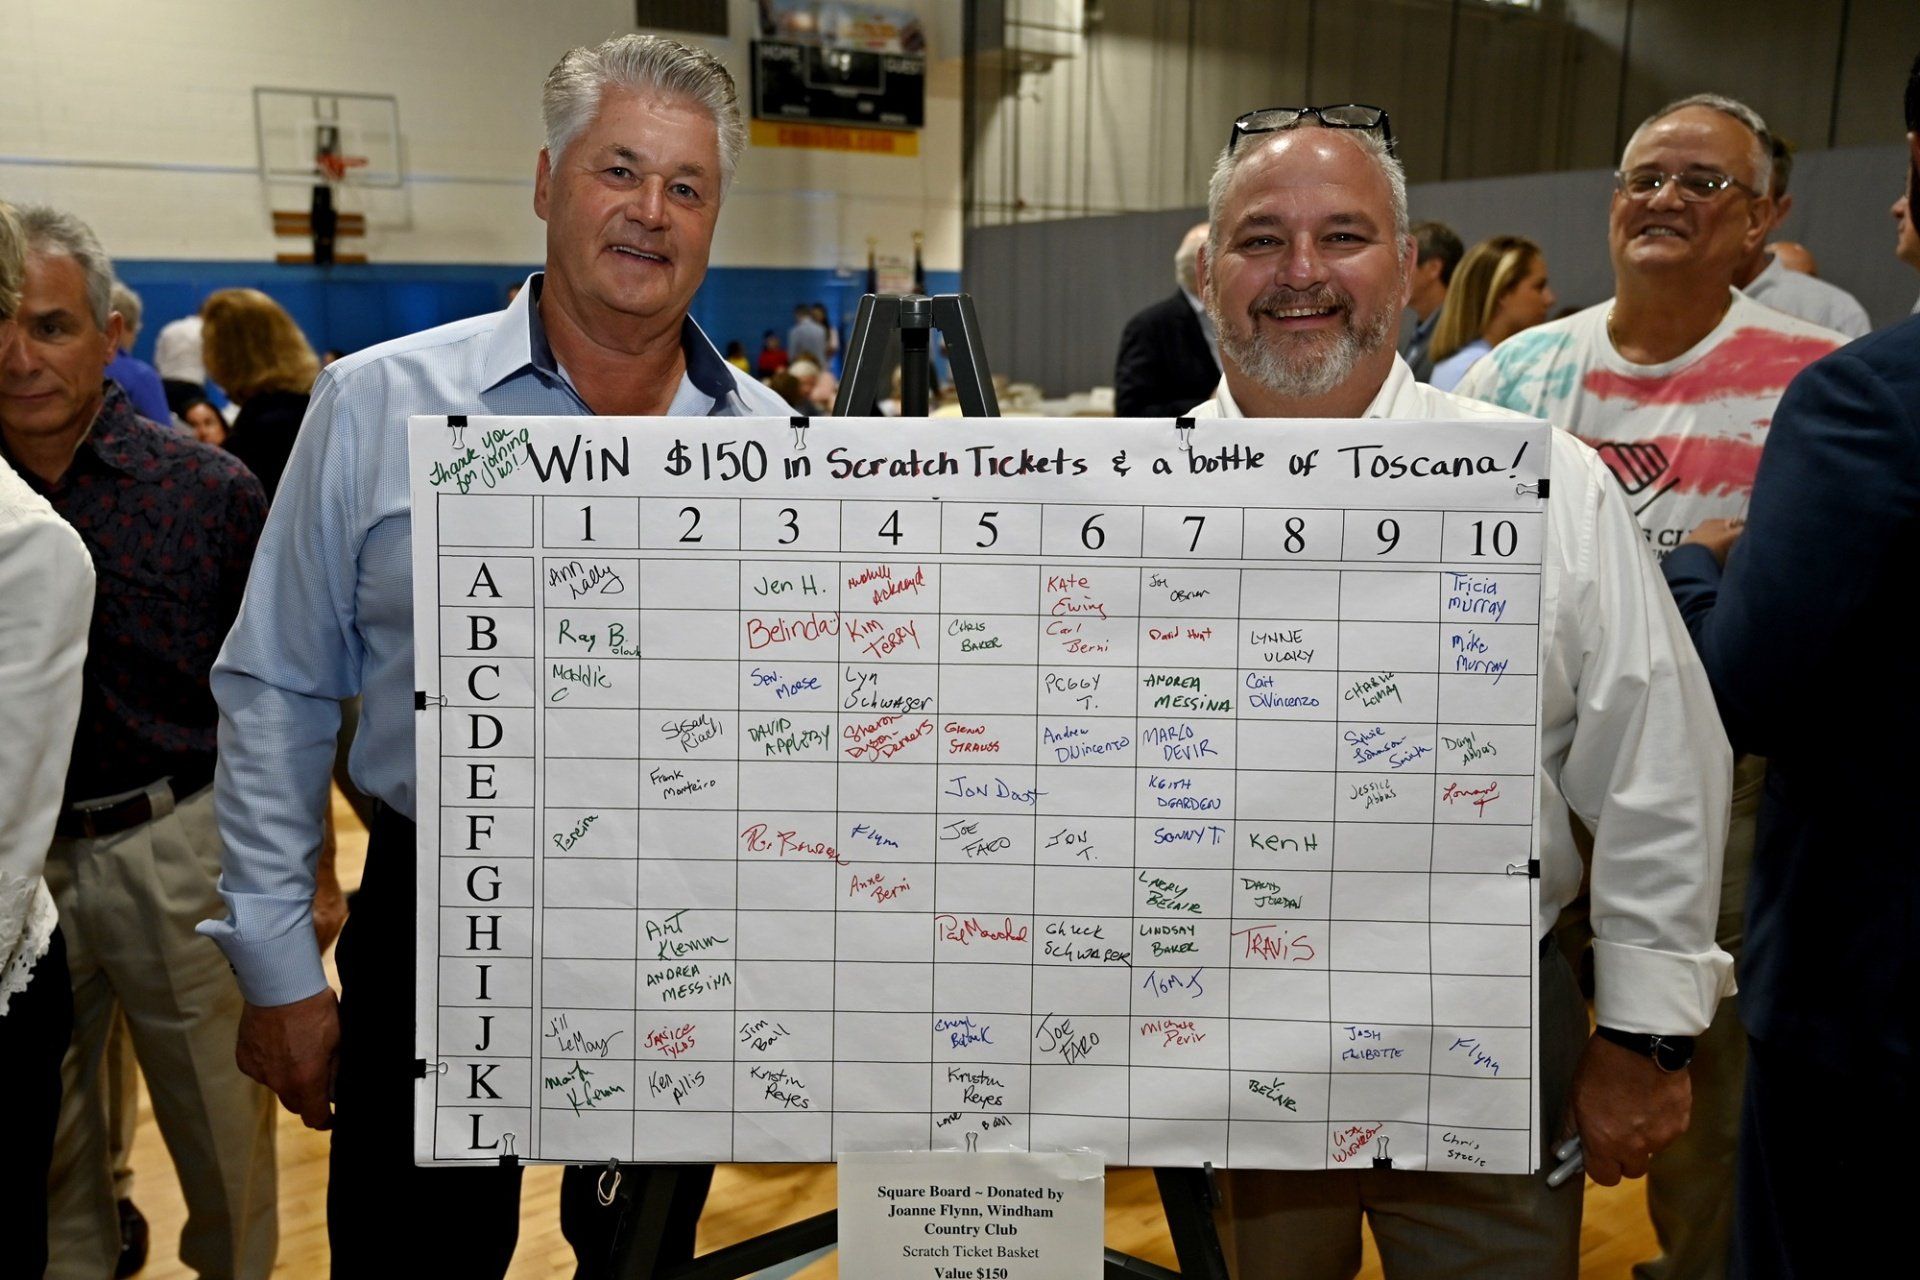 HOME GUEST
Thank you
for joining
us!
WIN $150 in Scratch Tickets & a bottle of Toscana!
1 2 3 4 5 6 7 8 9 10
A Ann Lally Jen H. Kate Ewing Joe OBrien Tricia Murray
B Ray B. Belinda Kim Terry Chris Baker Carl Berni David Hunt Lynne Mike Murray
C Maddie C Sen. Morse Lyn Schwager Peggy T. Andrea Messina Cait DiVincenzo Charlie LeMay
D Susan David Appleby Sharon Dyson-Demers Glenn Strauss Andrew DiVincenzo Marlo Devir Sylvie Johnson Smith Daryl Abbas
E Frank Monteiro Jon Keith Dearden Jessica Abbas
F Pereira Flynn Joe Faro Jon T. Sonny T. Ken H
G Anne Berni Larry Belair David Jordan
H Art Klemm Chuck Schwager Lindsay Baker Travis
I Andrea Messina Tom J
J Jill LeMay Janice Jim Ball Joe Faro Michele Devir Josh Flynn
K Klemm Ken Allis Kristin Reyes Kristin Reyes V. Belair
L Lisa Chris Steele
Square Board ~ Donated by
Joanne Flynn, Windham
Country Club
Scratch Ticket Basket
Value $150